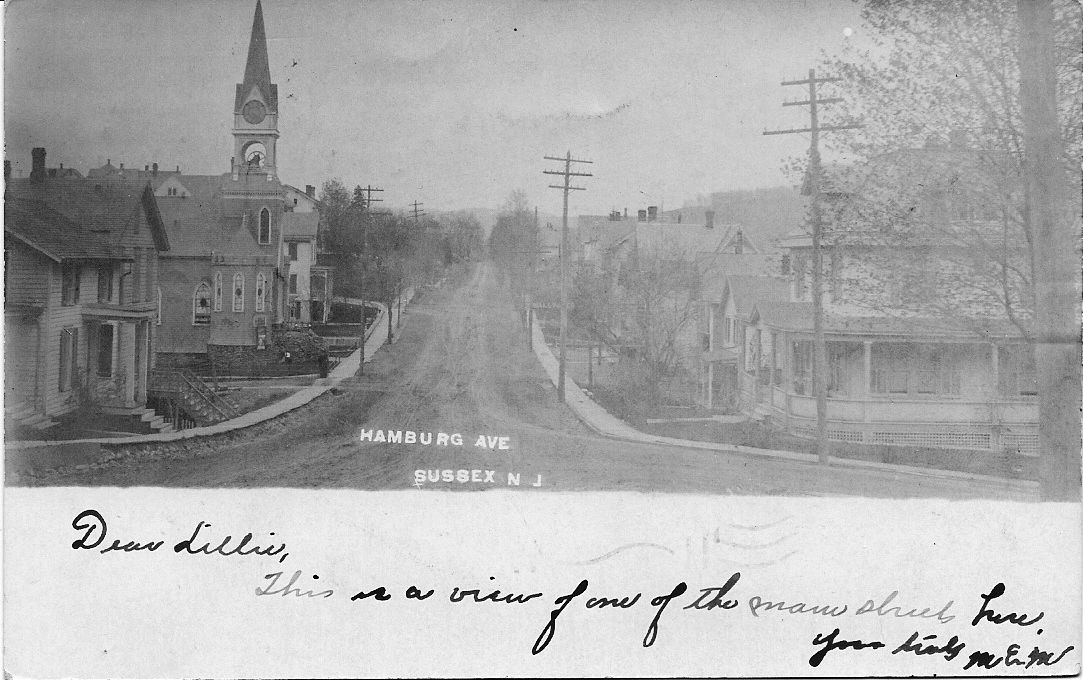 HAMBURG AVE
SUSSEX N J
Dear Lillie,
This is a view of one of the main streets here.
Your truly M E. M